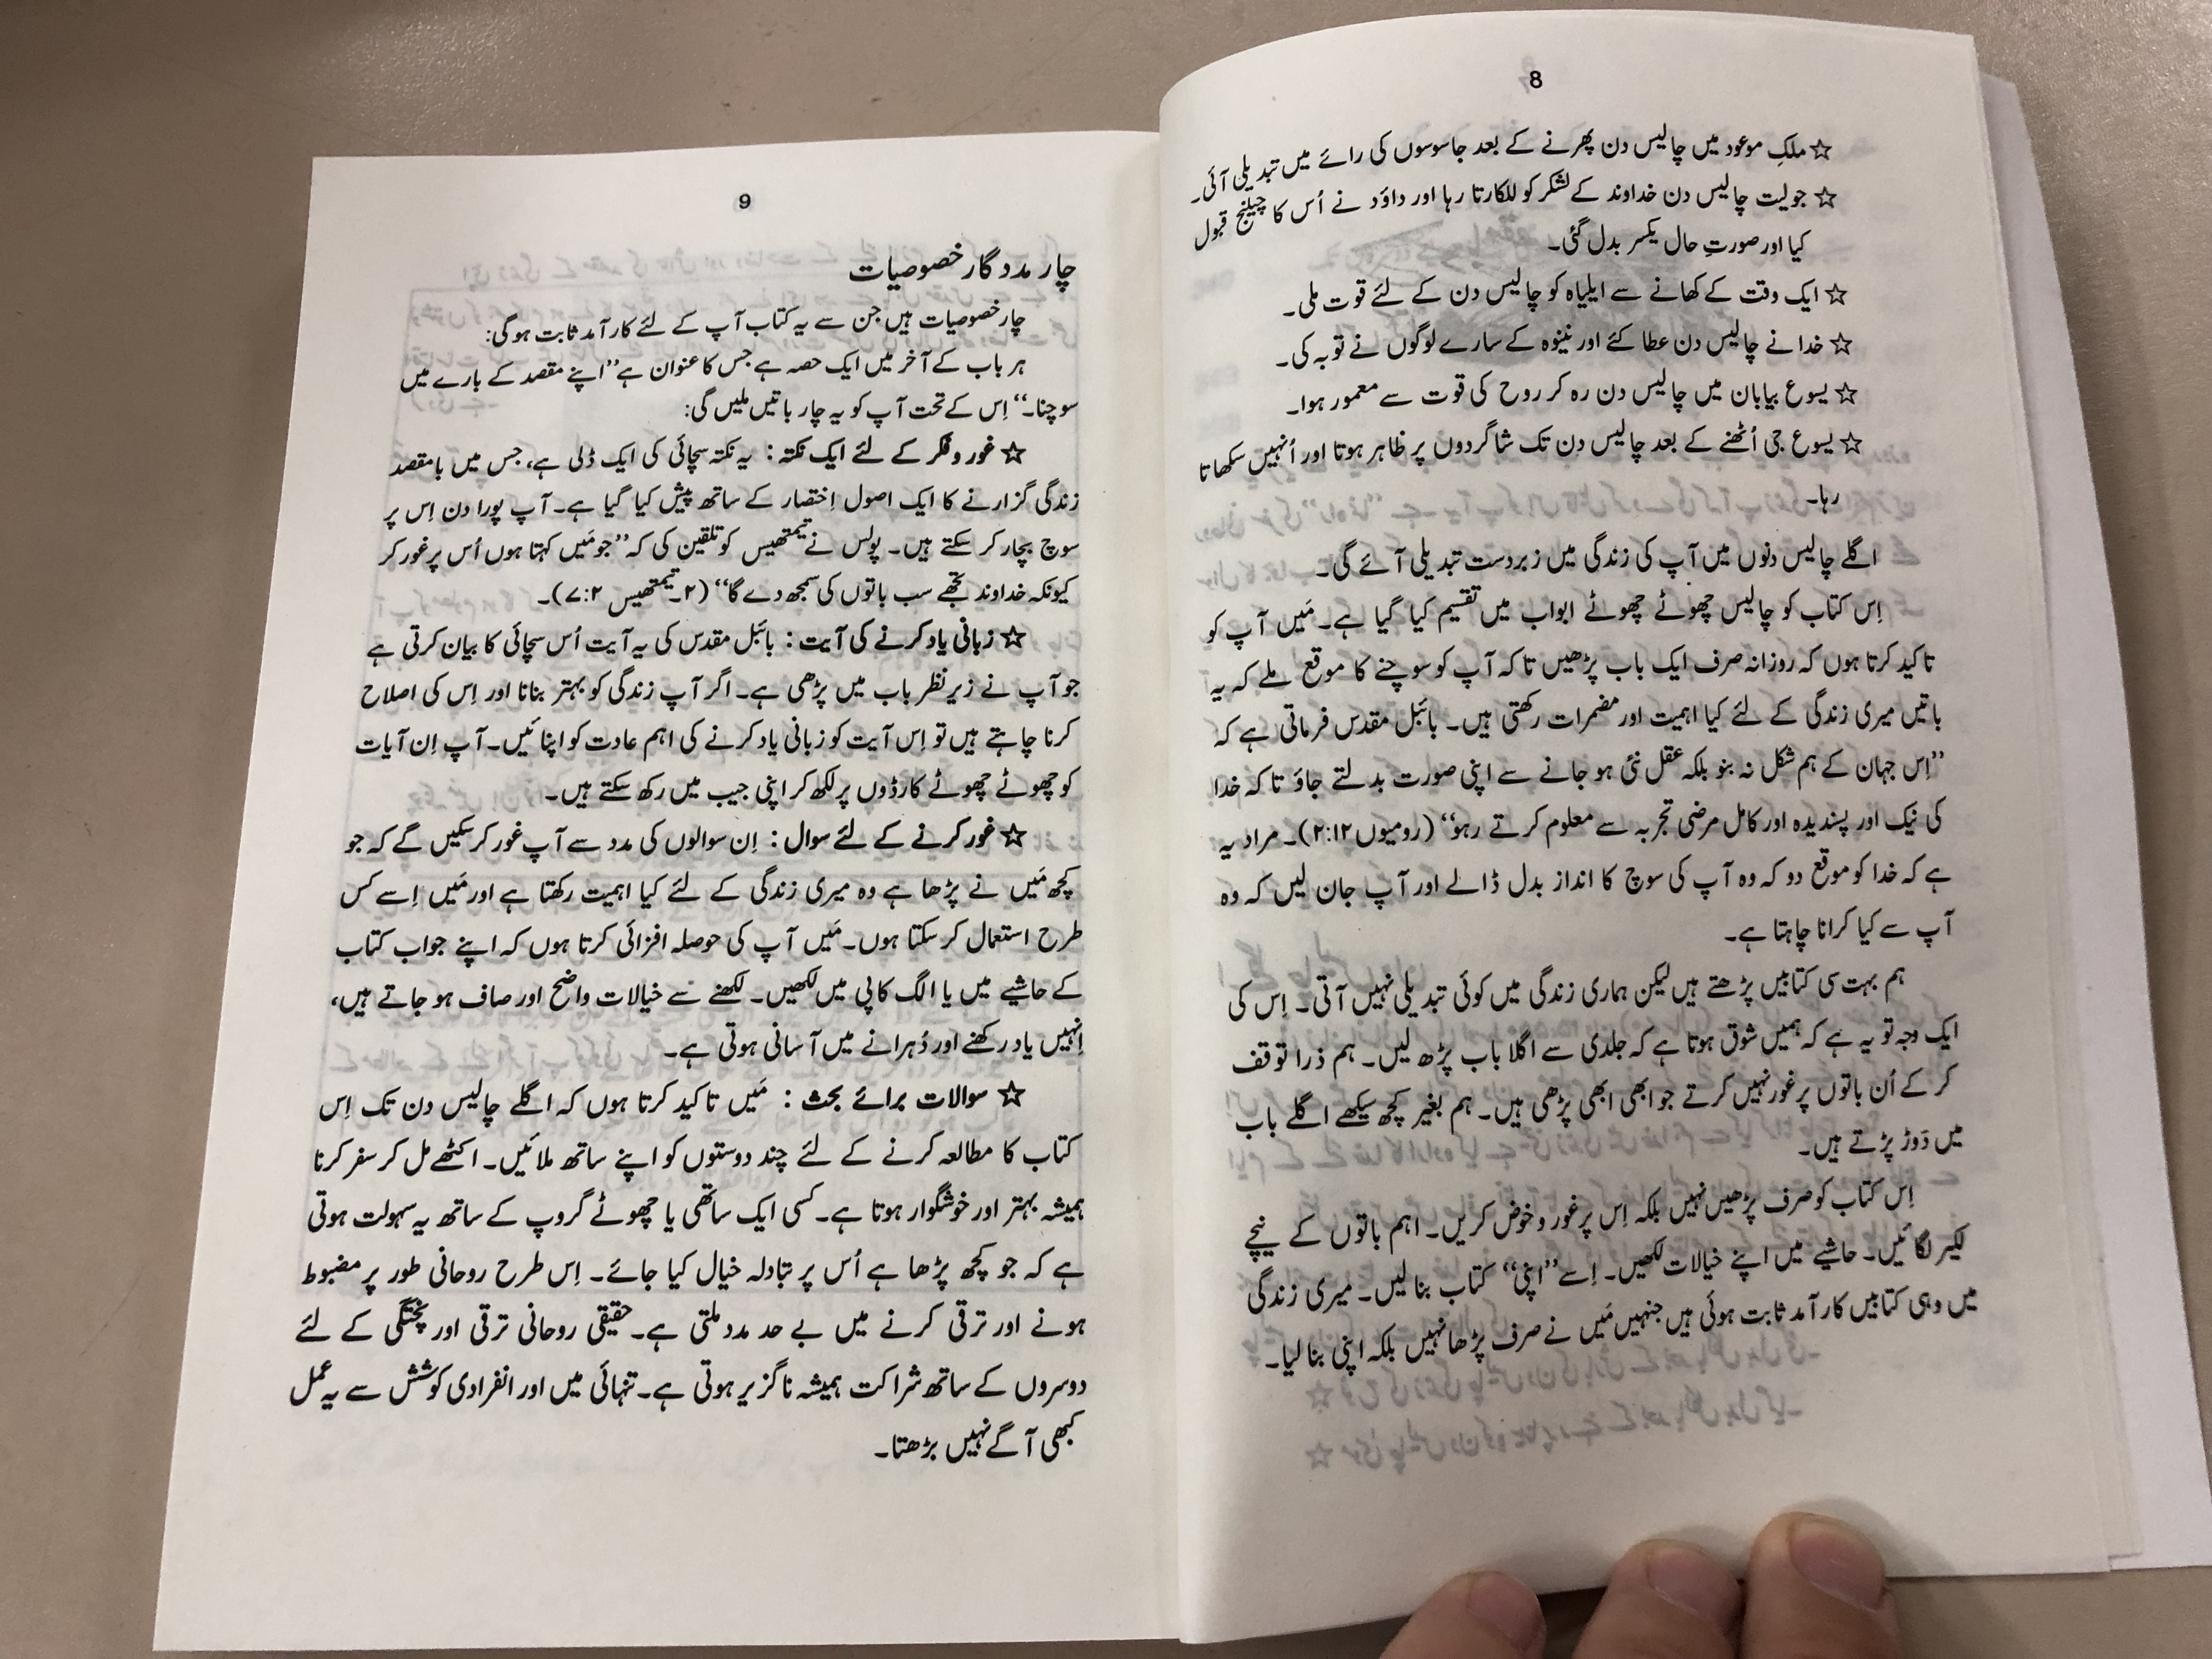 8
☆ ملکِ موعود میں چالیس دن پھرنے کے بعد جاسوسوں کی رائے میں تبدیلی آئی۔
☆ جولیت چالیس دن خداوند کے لشکر کو للکارتا رہا اور داؤد نے اُس کا چیلنج قبول
کیا اور صورتِ حال یکسر بدل گئی۔
☆ ایک وقت کے کھانے سے ایلیاہ کو چالیس دن کے لئے قوت ملی۔
☆ خدا نے چالیس دن عطا کئے اور نینوہ کے سارے لوگوں نے توبہ کی۔
☆ یسوع بیابان میں چالیس دن رہ کر روح کی قوت سے معمور ہوا۔
☆ یسوع جی اُٹھنے کے بعد چالیس دن تک شاگردوں پر ظاہر ہوتا اور اُنہیں سکھاتا
رہا۔
اگلے چالیس دنوں میں آپ کی زندگی میں زبردست تبدیلی آئے گی۔
اِس کتاب کو چالیس چھوٹے چھوٹے ابواب میں تقسیم کیا گیا ہے۔ مَیں آپ کو
تاکید کرتا ہوں کہ روزانہ صرف ایک باب پڑھیں تاکہ آپ کو سوچنے کا موقع ملے کہ یہ
باتیں میری زندگی کے لئے کیا اہمیت اور مضمرات رکھتی ہیں۔ بائبل مقدس فرماتی ہے کہ
”اِس جہان کے ہم شکل نہ بنو بلکہ عقل نئی ہو جانے سے اپنی صورت بدلتے جاؤ تاکہ خدا
کی نیک اور پسندیدہ اور کامل مرضی تجربہ سے معلوم کرتے رہو“ (رومیوں ۲:۱۲)۔ مراد یہ
ہے کہ خدا کو موقع دو کہ وہ آپ کی سوچ کا انداز بدل ڈالے اور آپ جان لیں کہ وہ
آپ سے کیا کرانا چاہتا ہے۔
ہم بہت سی کتابیں پڑھتے ہیں لیکن ہماری زندگی میں کوئی تبدیلی نہیں آتی۔ اِس کی
ایک وجہ تو یہ ہے کہ ہمیں شوق ہوتا ہے کہ جلدی سے اگلا باب پڑھ لیں۔ ہم ذرا توقف
کر کے اُن باتوں پر غور نہیں کرتے جو ابھی ابھی پڑھی ہیں۔ ہم بغیر کچھ سیکھے اگلے باب
میں دَوڑ پڑتے ہیں۔
اِس کتاب کو صرف پڑھیں نہیں بلکہ اِس پر غور و خوض کریں۔ اہم باتوں کے نیچے
لکیر لگائیں۔ حاشیے میں اپنے خیالات لکھیں۔ اِسے ”اپنی“ کتاب بنا لیں۔ میری زندگی
میں وہی کتابیں کارآمد ثابت ہوئی ہیں جنہیں مَیں نے صرف پڑھا نہیں بلکہ اپنی بنا لیا۔
9
چار مددگار خصوصیات
چار خصوصیات ہیں جن سے یہ کتاب آپ کے لئے کارآمد ثابت ہو گی:
ہر باب کے آخر میں ایک حصہ ہے جس کا عنوان ہے ”اپنے مقصد کے بارے میں
سوچنا۔“ اِس کے تحت آپ کو یہ چار باتیں ملیں گی:
☆ غور و فکر کے لئے ایک نکتہ: یہ نکتہ سچائی کی ایک ڈلی ہے، جس میں بامقصد
زندگی گزارنے کا ایک اصول اِختصار کے ساتھ پیش کیا گیا ہے۔ آپ پورا دن اِس پر
سوچ بچار کر سکتے ہیں۔ پولس نے تیمتھیس کو تلقین کی کہ ”جو مَیں کہتا ہوں اُس پر غور کر
کیونکہ خداوند تجھے سب باتوں کی سمجھ دے گا“ (۲۔تیمتھیس ۷:۲)۔
☆ زبانی یاد کرنے کی آیت: بائبل مقدس کی یہ آیت اُس سچائی کا بیان کرتی ہے
جو آپ نے زیرِ نظر باب میں پڑھی ہے۔ اگر آپ زندگی کو بہتر بنانا اور اِس کی اصلاح
کرنا چاہتے ہیں تو اِس آیت کو زبانی یاد کرنے کی اہم عادت کو اپنائیں۔ آپ اِن آیات
کو چھوٹے چھوٹے کارڈوں پر لکھ کر اپنی جیب میں رکھ سکتے ہیں۔
☆ غور کرنے کے لئے سوال: اِن سوالوں کی مدد سے آپ غور کر سکیں گے کہ جو
کچھ مَیں نے پڑھا ہے وہ میری زندگی کے لئے کیا اہمیت رکھتا ہے اور مَیں اِسے کس
طرح استعمال کر سکتا ہوں۔ مَیں آپ کی حوصلہ افزائی کرتا ہوں کہ اپنے جواب کتاب
کے حاشیے میں یا الگ کاپی میں لکھیں۔ لکھنے سے خیالات واضح اور صاف ہو جاتے ہیں،
اِنہیں یاد رکھنے اور دُہرانے میں آسانی ہوتی ہے۔
☆ سوالات برائے بحث: مَیں تاکید کرتا ہوں کہ اگلے چالیس دن تک اِس
کتاب کا مطالعہ کرنے کے لئے چند دوستوں کو اپنے ساتھ ملائیں۔ اکٹھے مل کر سفر کرنا
ہمیشہ بہتر اور خوشگوار ہوتا ہے۔ کسی ایک ساتھی یا چھوٹے گروپ کے ساتھ یہ سہولت ہوتی
ہے کہ جو کچھ پڑھا ہے اُس پر تبادلہ خیال کیا جائے۔ اِس طرح روحانی طور پر مضبوط
ہونے اور ترقی کرنے میں بے حد مدد ملتی ہے۔ حقیقی روحانی ترقی اور پختگی کے لئے
دوسروں کے ساتھ شراکت ہمیشہ ناگزیر ہوتی ہے۔ تنہائی میں اور انفرادی کوشش سے یہ عمل
کبھی آگے نہیں بڑھتا۔